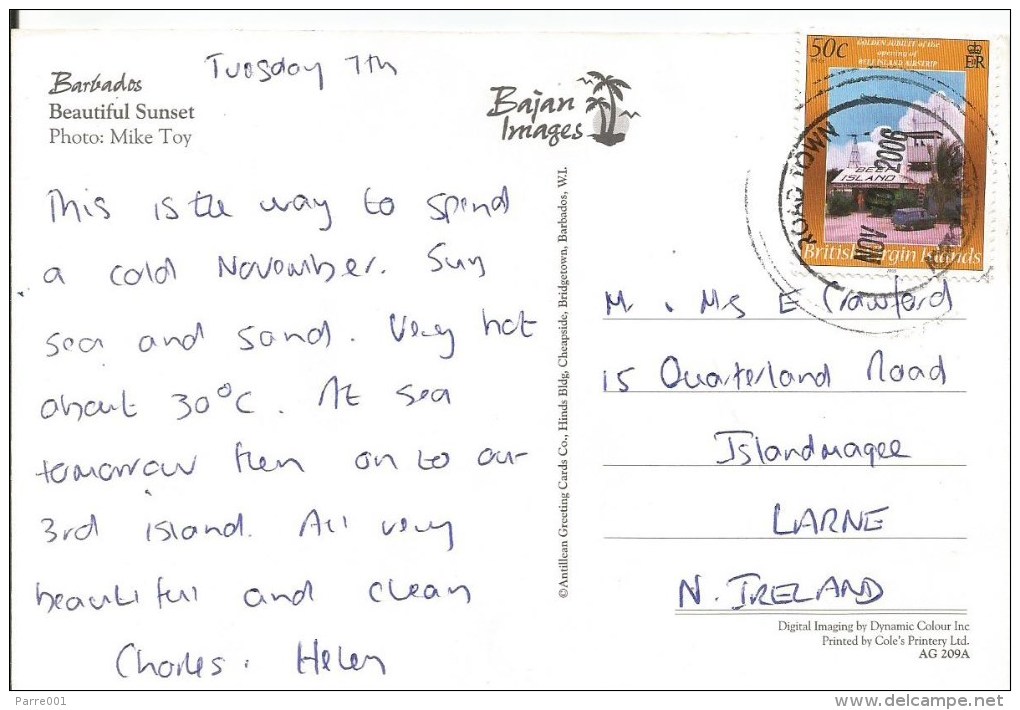 Tuesday 7th
Barbados
Beautiful Sunset
Photo: Mike Toy
Bajan
Images
This is the way to spend
a cold November. Sun
sea and sand. Very hot
about 30°C. At sea
tomorrow then on to our
3rd island. All very
beautiful and clean
Charles. Helen
©Antillean Greeting Cards Co., Hinds Bldg, Cheapside, Bridgetown, Barbados, W.I.
50c
GOLDEN JUBILEE of the
opening of
BEEF ISLAND AIRSTRIP
EIIR
BEEF
ISLAND
British Virgin Islands
ROAD TOWN
NOV 2006
Mr. Mrs E Crawford
15 Quarterland Road
Islandmagee
LARNE
N. IRELAND
Digital Imaging by Dynamic Colour Inc
Printed by Cole's Printery Ltd.
AG 209A
Parre001
www.delcampe.net